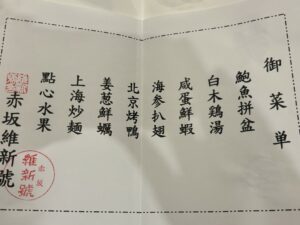 御菜単
鮑魚拼盆
白木鶏湯
咸蛋鮮蝦
海参扒翅
北京烤鴨
姜葱鮮蠣
上海炒麺
點心水果
赤坂維新號
赤坂
維新號